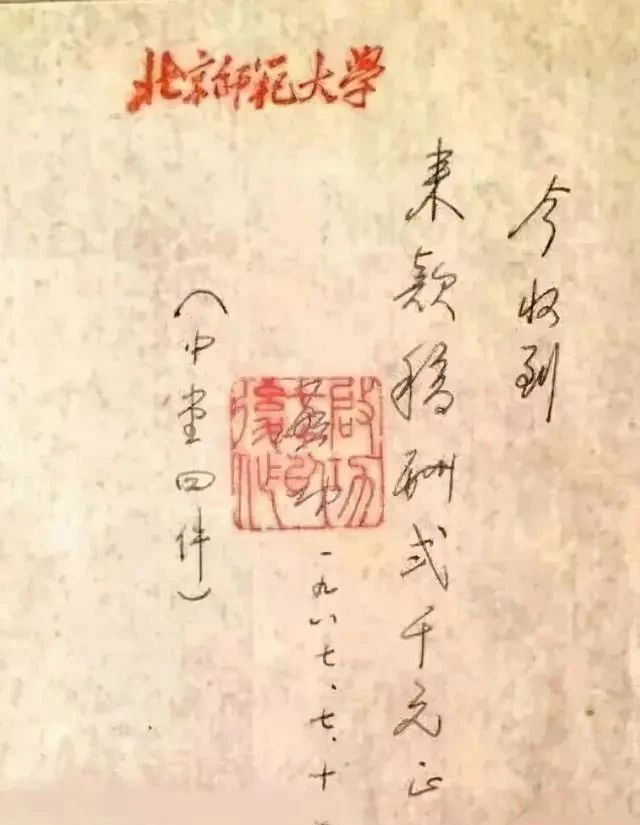 北京师范大学
今收到
来款稿酬弍千元正
啟功
一九八七、七、十
（中堂四件）